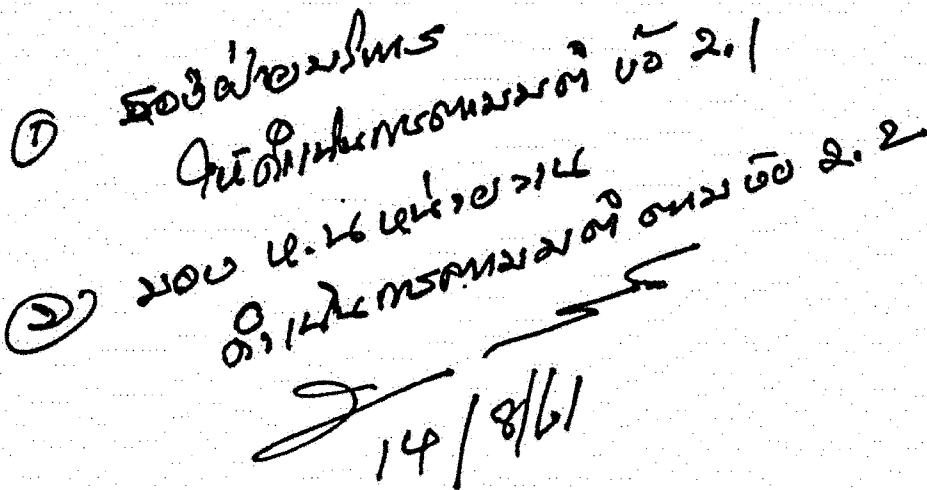 ① รองฯ ฝ่ายบริหาร
ให้ดำเนินการตามมติ ข้อ 2.1
② มอบ ห.น หน่วยงาน
ดำเนินการตามมติ ตามข้อ 2.2
14/8/61